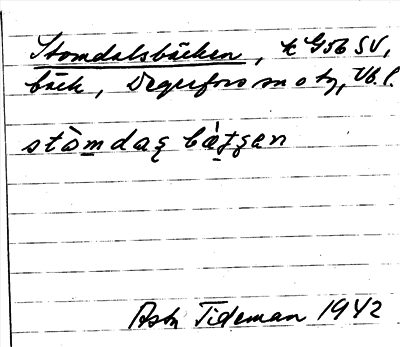 Stomdalsbäcken, k G56 SV,
bäck, Degerfors sn o tg, Vb.l.
stòm daʂ bæ̀tʂen
Astr Tideman 1942